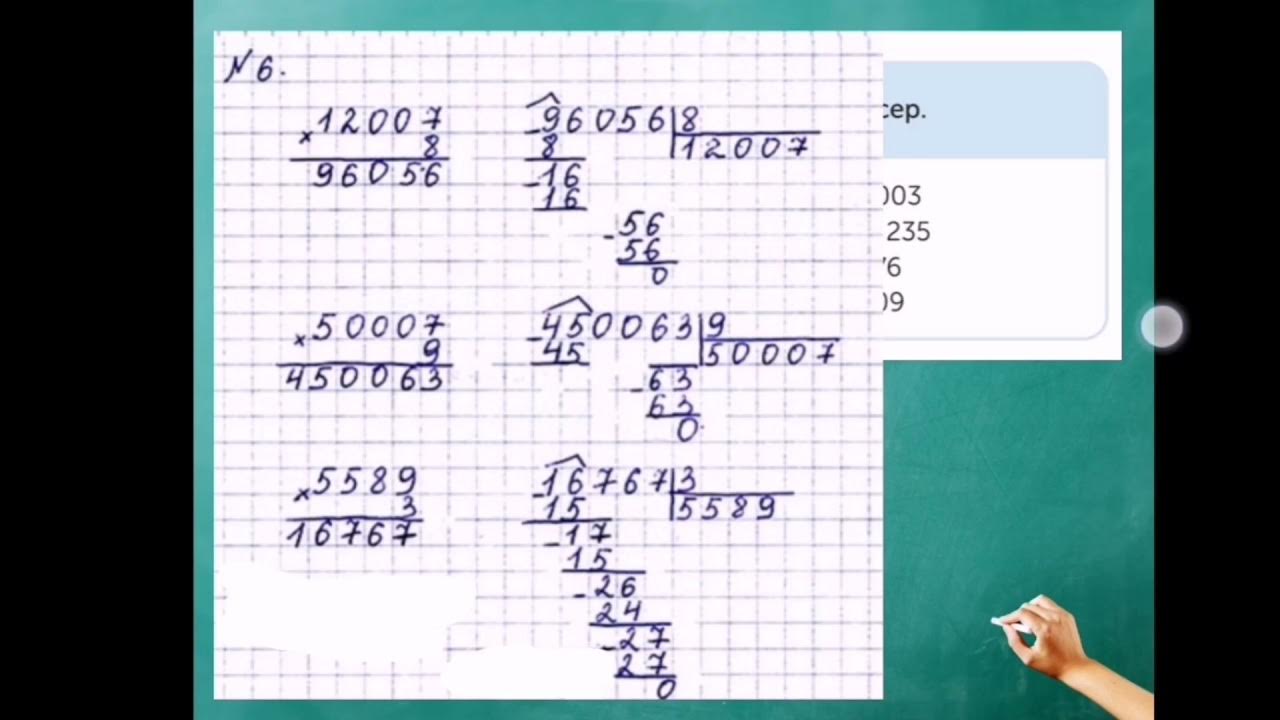 № 6.
× 12007
8
96056
- 96056 | 8
8 | 12007
- 16
16
- 56
56
0
× 50007
9
450063
- 450063 | 9
45 | 50007
- 63
63
0
× 5589
3
16767
- 16767 | 3
15 | 5589
- 17
15
- 26
24
- 27
27
0
сер.
003
235
76
09